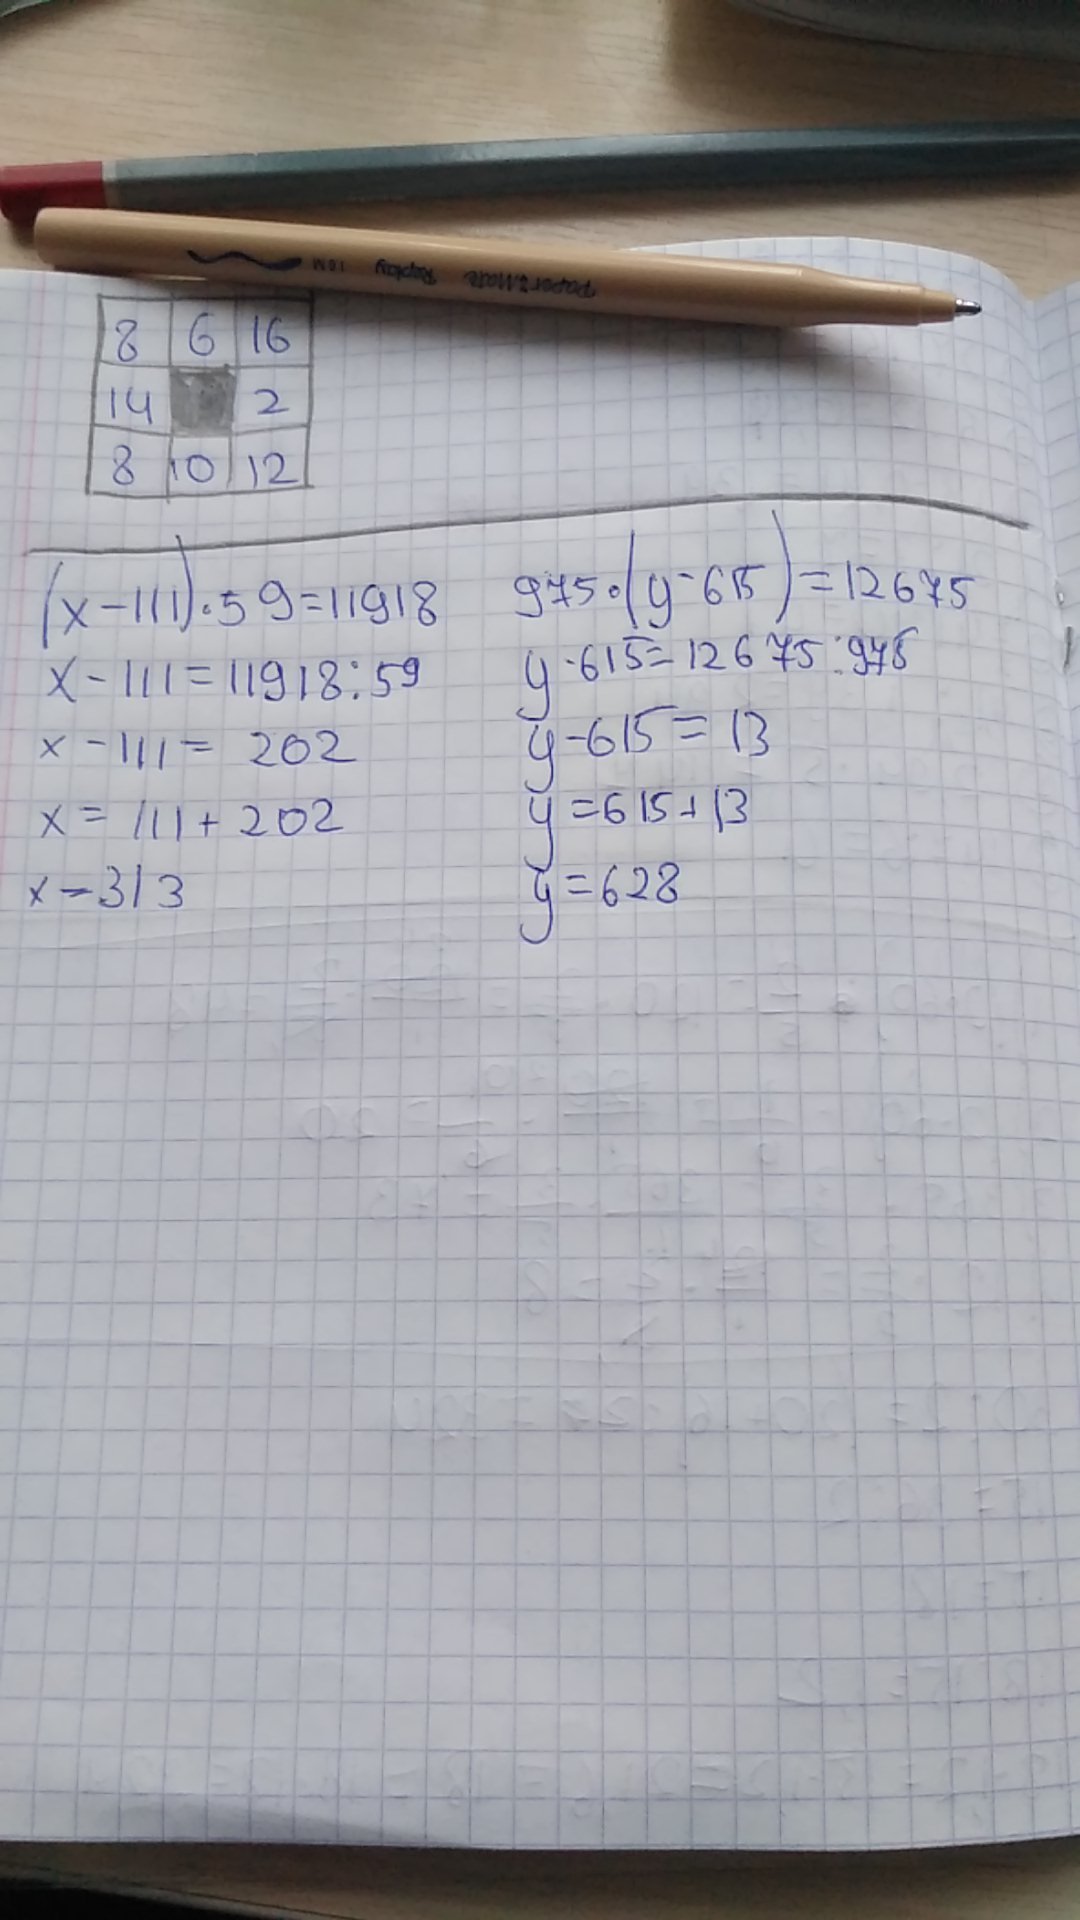 Paper:Mate Replay 1.0M
8 6 16
14 2
8 10 12
(x-111)·59=11918
x-111=11918:59
x-111= 202
x= 111+202
x-313
975·(y-615)=12675
y-615=12675:975
y-615=13
y=615+13
y=628